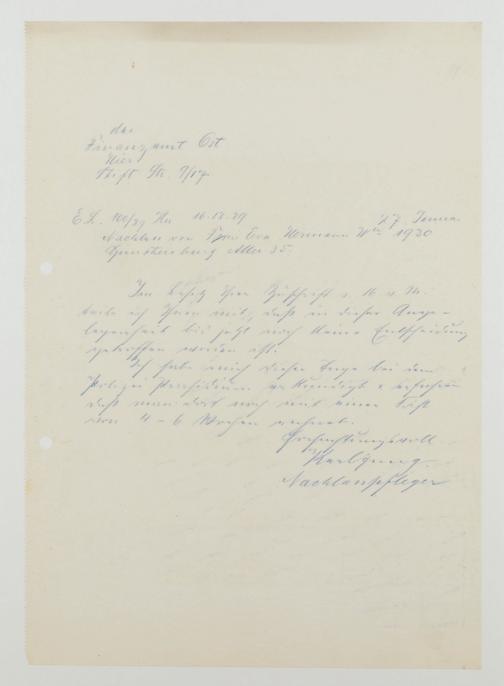 das
Finanzamt Ost
Hier
Stift Str. 9/17
E. L. 100/29 16.12.29 27. Januar
Nachlass von Frau Eva Hermann Wwe 1930
Allee 35.
Im Besitz Ihrer Zuschrift v. 16. v. Mt.
teile ich Ihnen mit, daß in dieser Ange-
legenheit bis jetzt noch keine Entscheidung
getroffen worden ist.
Ich habe mich dieser Tage bei dem
Polizei Präsidium erkundigt & erfahren
daß man dort noch mit einer Frist
von 4 - 6 Wochen rechnet.
Hochachtungsvoll
Nachlasspfleger